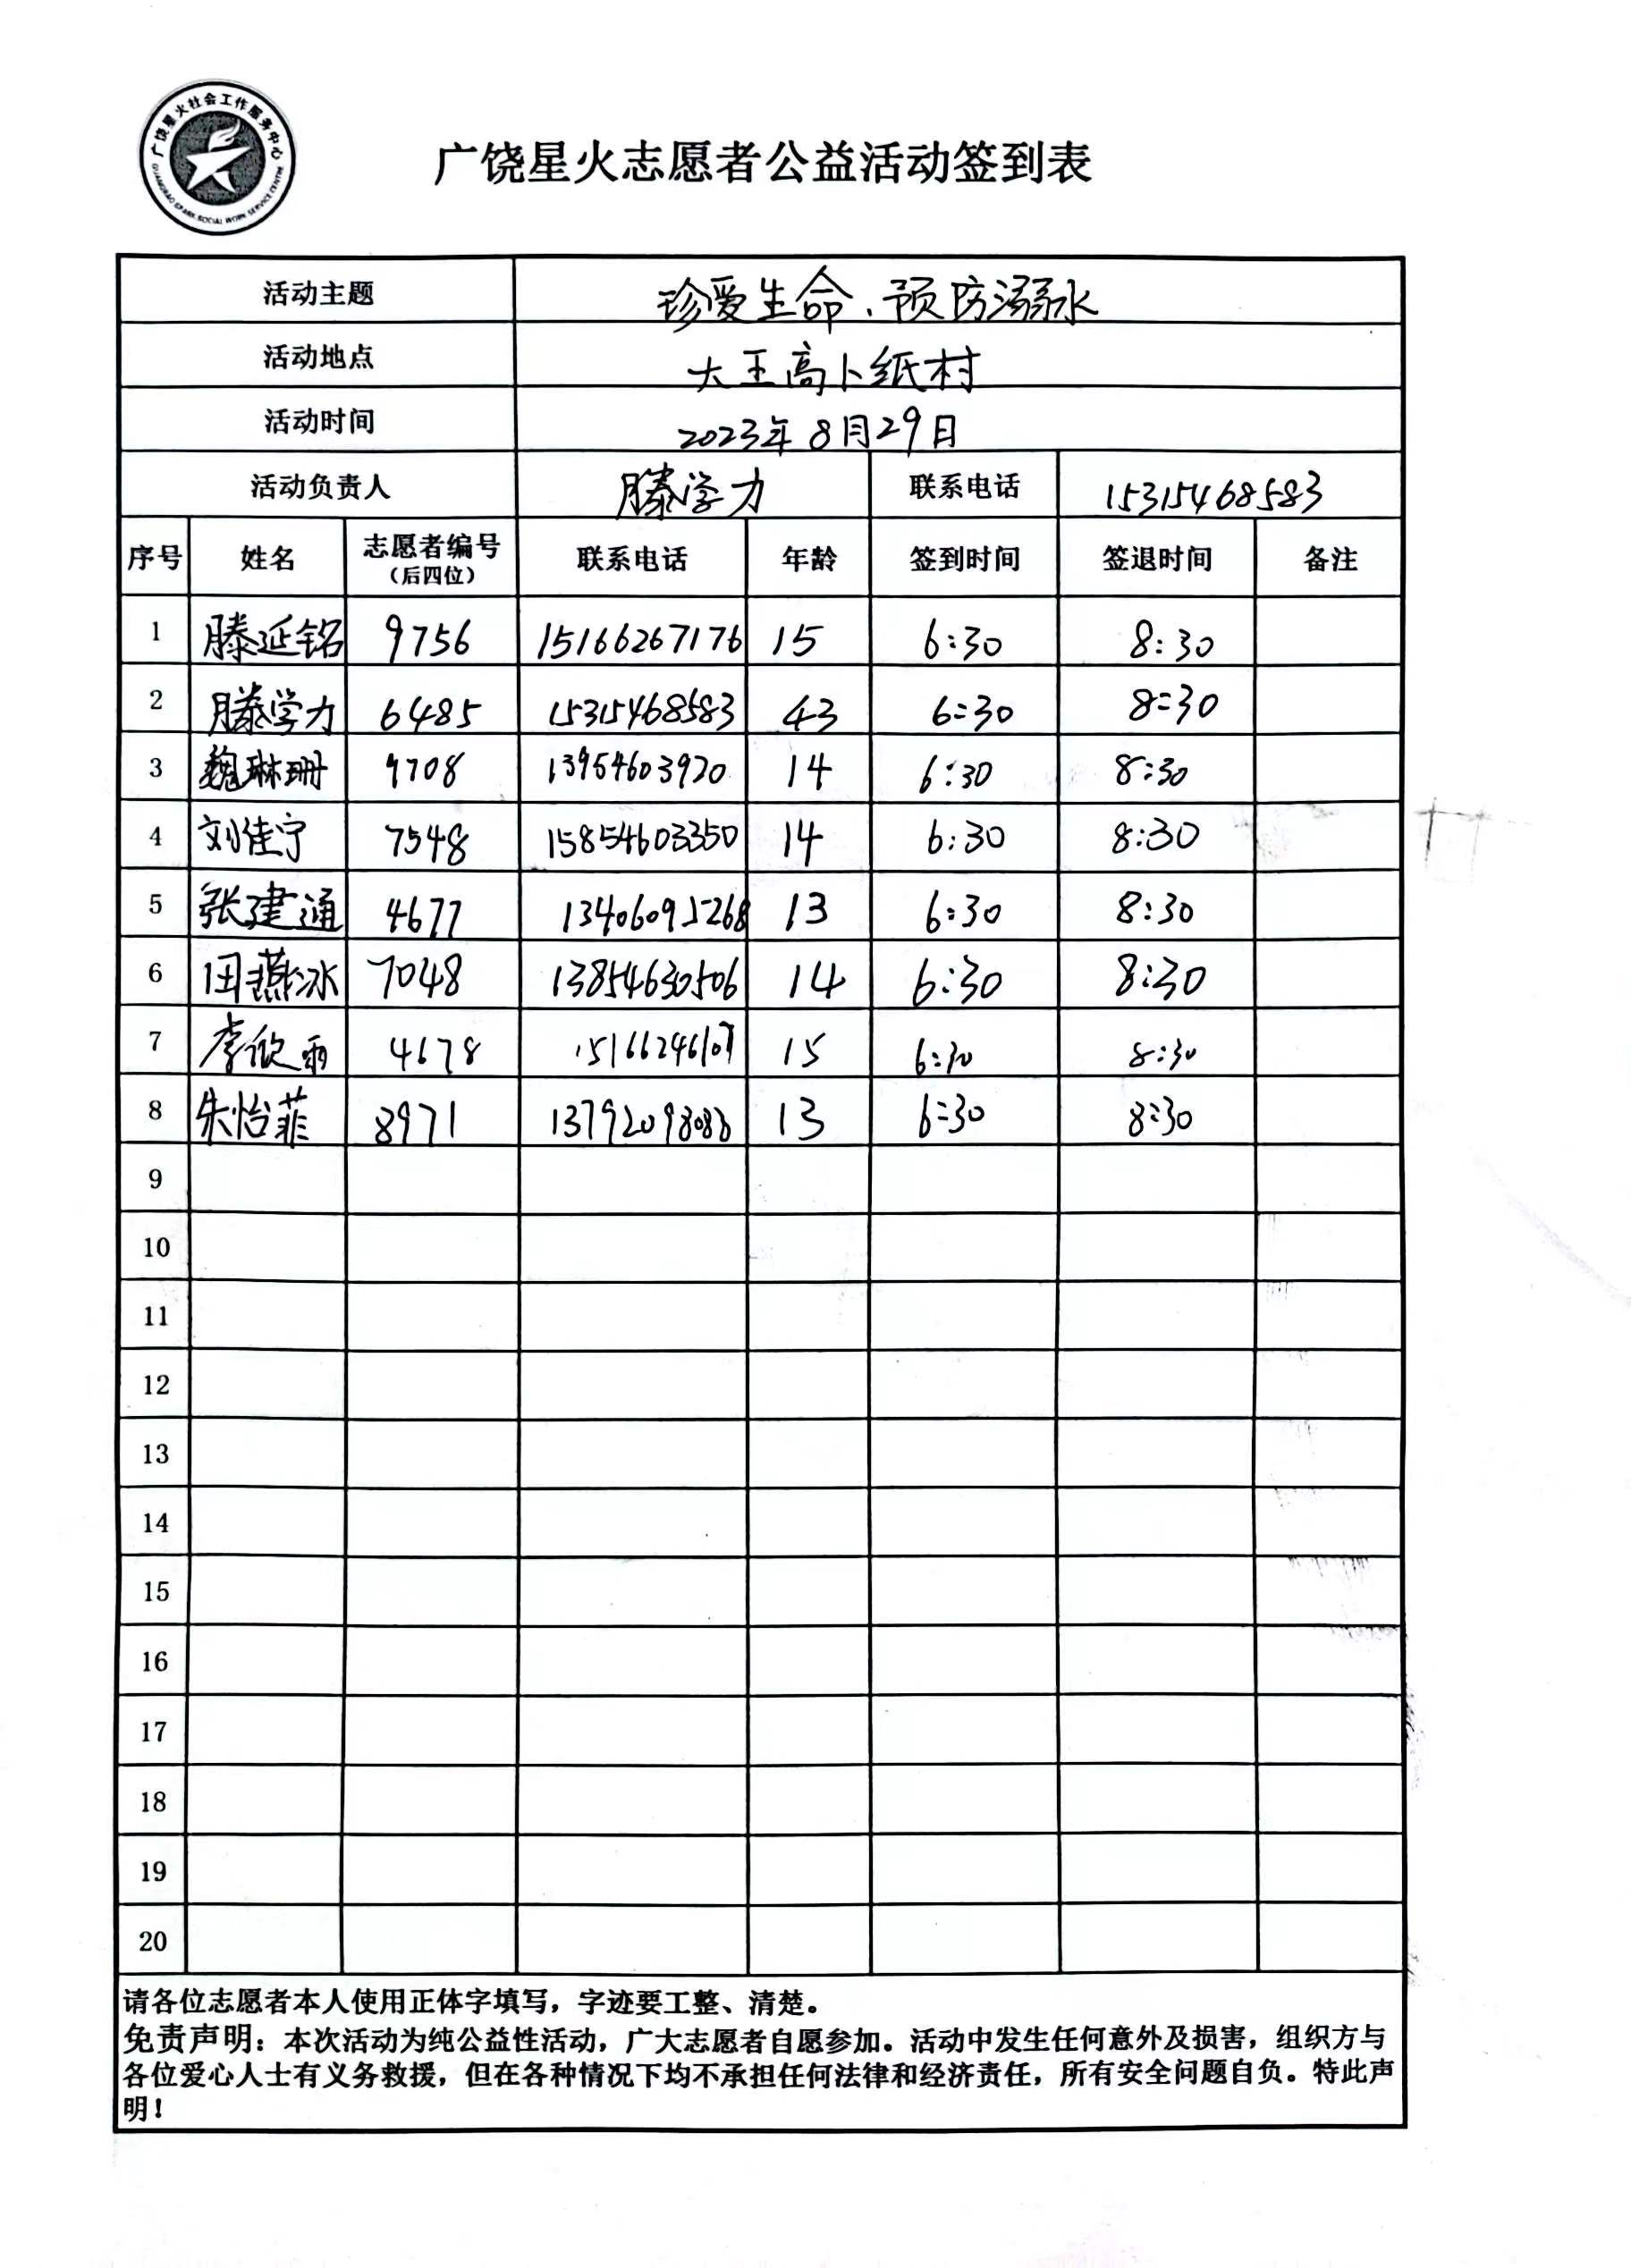 广饶星火社会工作服务中心
GUANGRAO SPARK SOCIAL WORK SERVICE CENTRE
广饶星火志愿者公益活动签到表
活动主题 珍爱生命、预防溺水
活动地点 大王高卜纸村
活动时间 2023年8月29日
活动负责人 滕学力 联系电话 15315468583
序号 姓名 志愿者编号（后四位） 联系电话 年龄 签到时间 签退时间 备注
1 滕延铭 9756 15166267176 15 6:30 8:30
2 滕学力 6485 15315468583 43 6:30 8:30
3 魏琳珊 9708 13954603920 14 6:30 8:30
4 刘佳宁 7548 15854603350 14 6:30 8:30
5 张建通 4677 13406095268 13 6:30 8:30
6 田燕冰 7048 13854630506 14 6:30 8:30
7 李欣雨 4678 15 6:30 8:30
8 朱怡菲 8971 13 6:30 8:30
9
10
11
12
13
14
15
16
17
18
19
20
请各位志愿者本人使用正体字填写，字迹要工整、清楚。
免责声明：本次活动为纯公益性活动，广大志愿者自愿参加。活动中发生任何意外及损害，组织方与
各位爱心人士有义务救援，但在各种情况下均不承担任何法律和经济责任，所有安全问题自负。特此声
明！